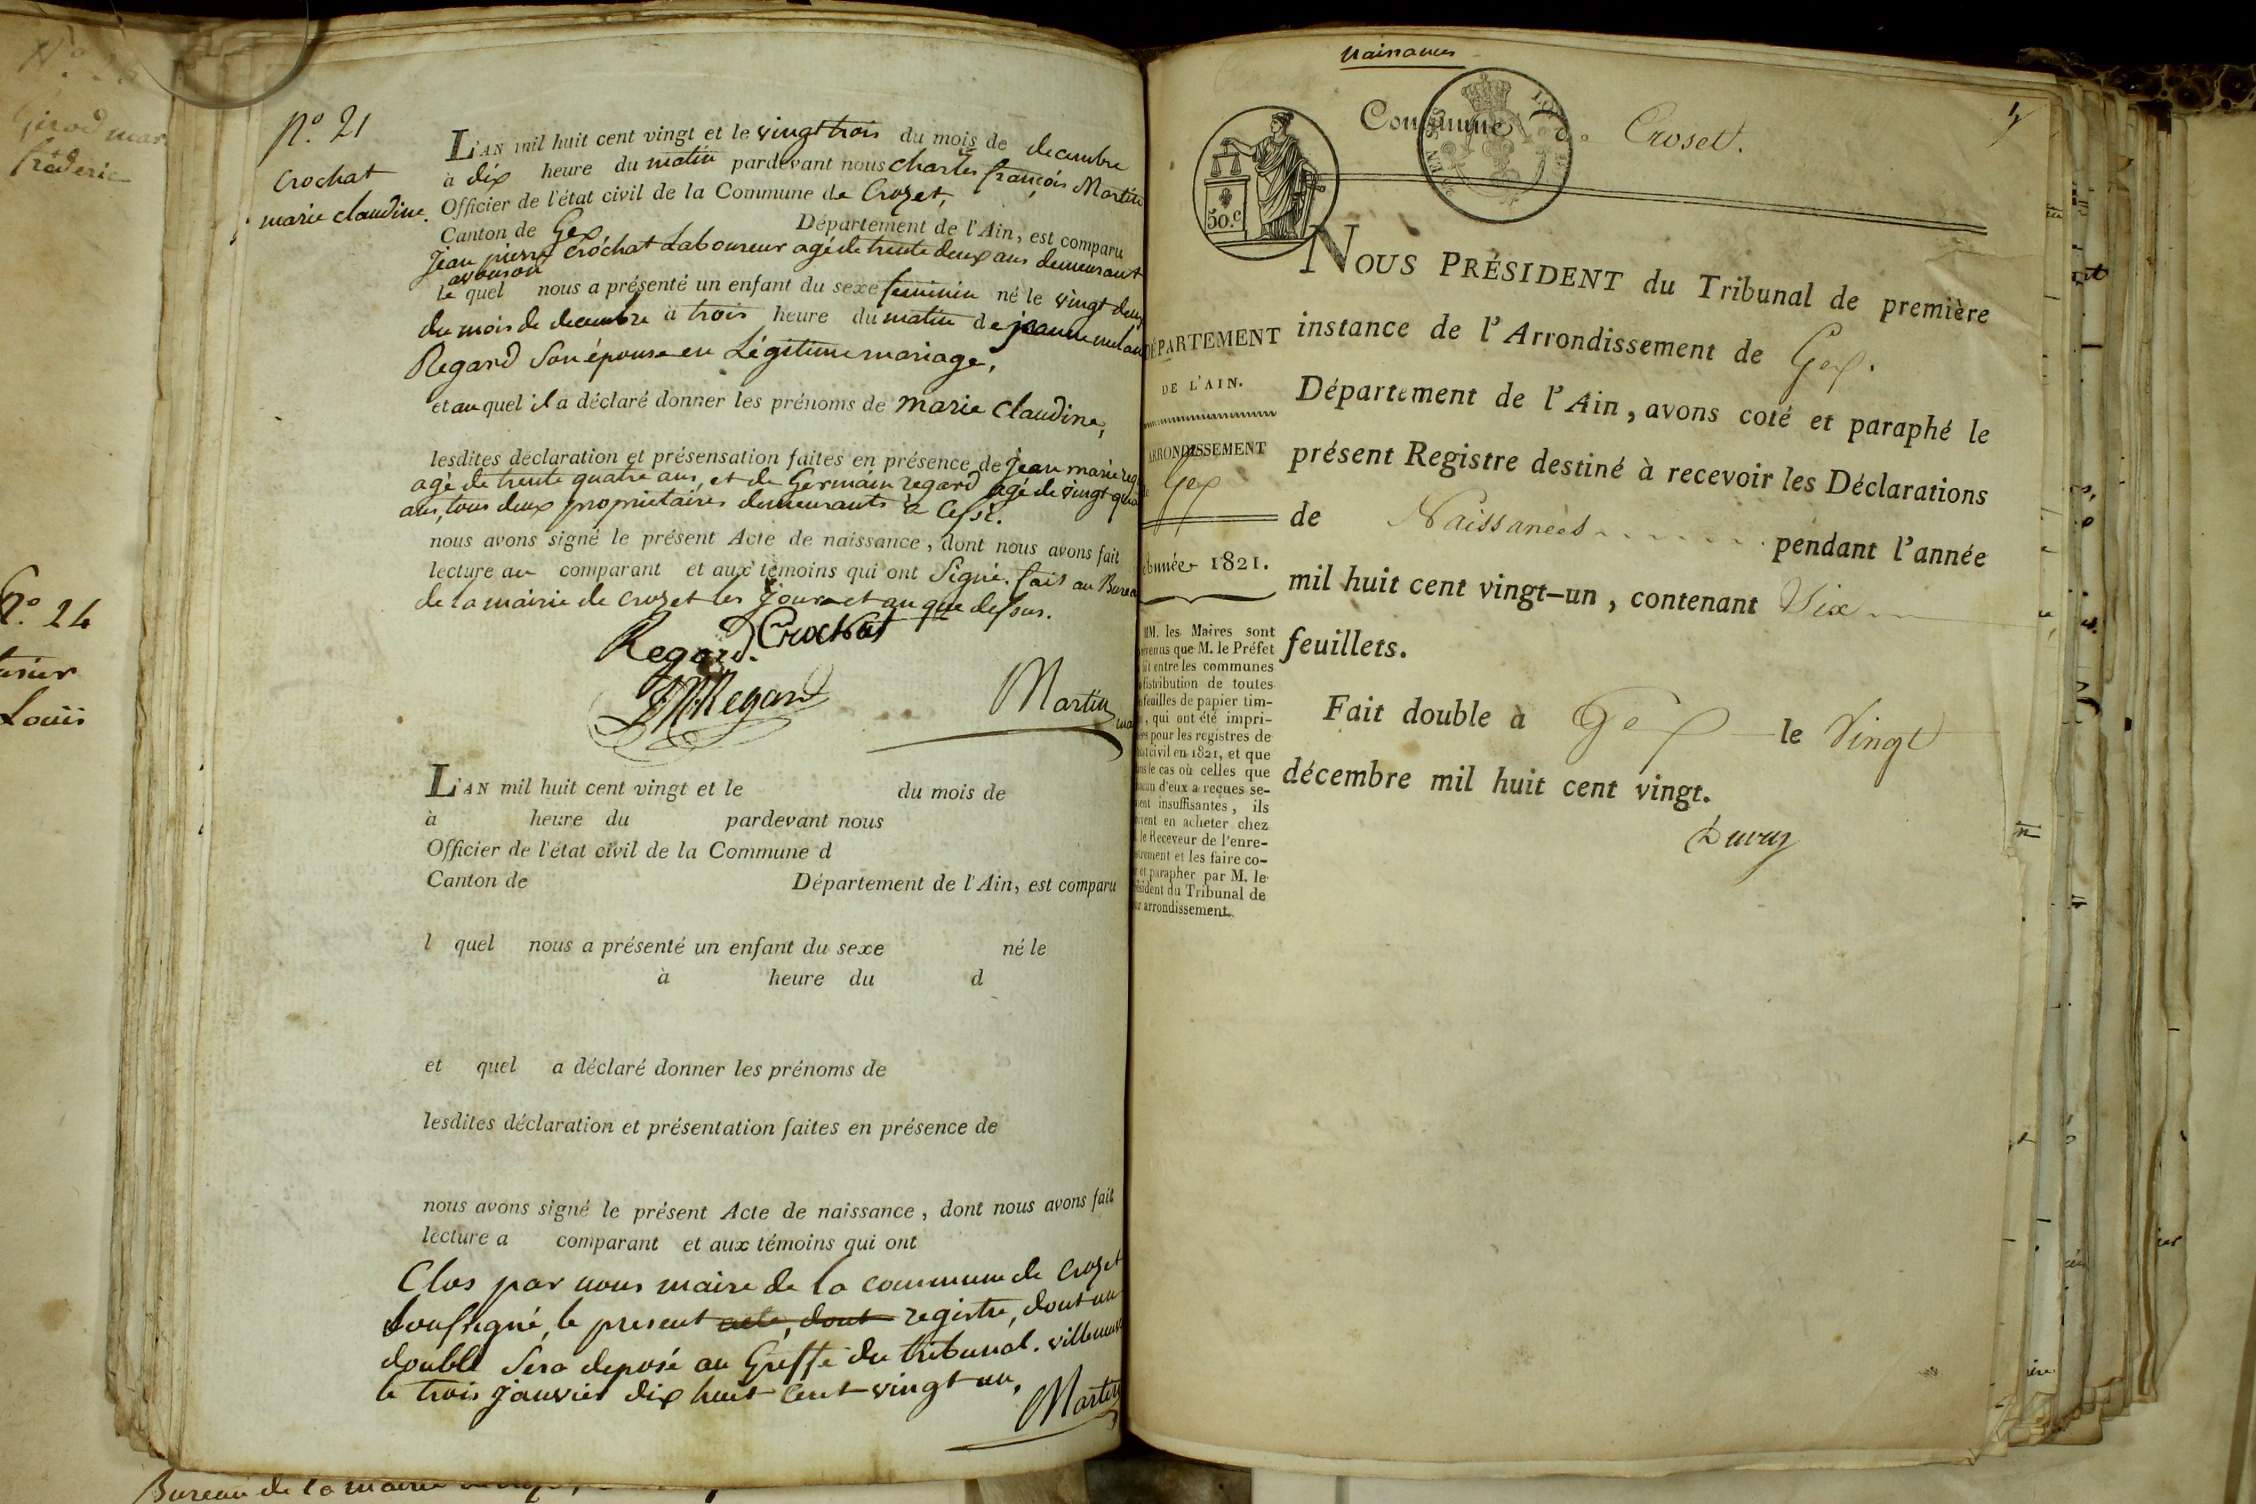 N.° 21
Crochat
marie claudine.
L'AN mil huit cent vingt et le vingt trois du mois de decembre
à dix heure du matin pardevant nous charles françois Martin
Officier de l'état civil de la Commune de Crozet,
Canton de Gex, Département de l'Ain, est comparu
jean pierre Crochat Laboureur agé de trente deux ans demeurant
le quel nous a présenté un enfant du sexe feminin né le vingt deux
du mois de decembre à trois heure du matin de jeanne
Regard Son épouse en Légitime mariage,
et au quel il a déclaré donner les prénoms de marie Claudine,
lesdites déclaration et présensation faites en présence de jean marie
agé de trente quatre ans, et de Germain regard agé de vingt
ans, tous deux proprietaires demeurants à
nous avons signé le présent Acte de naissance, dont nous avons fait
lecture au comparant et aux témoins qui ont Signé. fait au
de la mairie de crozet les jour et an que dessus.
Regard. Crochat
JMRegard
Martin
L'AN mil huit cent vingt et le du mois de
à heure du pardevant nous
Officier de l'état civil de la Commune d
Canton de Département de l'Ain, est comparu
l quel nous a présenté un enfant du sexe né le
à heure du d
et quel a déclaré donner les prénoms de
lesdites déclaration et présentation faites en présence de
nous avons signé le présent Acte de naissance, dont nous avons fait
lecture a comparant et aux témoins qui ont
Clos par nous maire de la commune de Crozet
soussigné, le present acte, dont registre, dont un
double Sera deposé au Greffe du tribunal.
le trois janvier dix huit cent vingt un,
Martin
Girod
frederic
N.° 24
Louis
Bureau de la mairie
Naissances
Commune de Croset.
50.c
DÉPARTEMENT
DE L'AIN.
ARRONDISSEMENT
Gex
1821.
MM. les Maires sont
que M. le Préfet
entre les communes
distribution de toutes
feuilles de papier tim-
, qui ont été impri-
pour les registres de
civil en 1821, et que
le cas où celles que
d'eux a reçues se-
insuffisantes, ils
en acheter chez
le Receveur de l'enre-
et les faire co-
et parapher par M. le
Président du Tribunal de
arrondissement.
NOUS PRÉSIDENT du Tribunal de première
instance de l'Arrondissement de Gex.
Département de l'Ain, avons coté et paraphé le
présent Registre destiné à recevoir les Déclarations
de Naissances pendant l'année
mil huit cent vingt-un, contenant Six
feuillets.
Fait double à Gex le Vingt
décembre mil huit cent vingt.